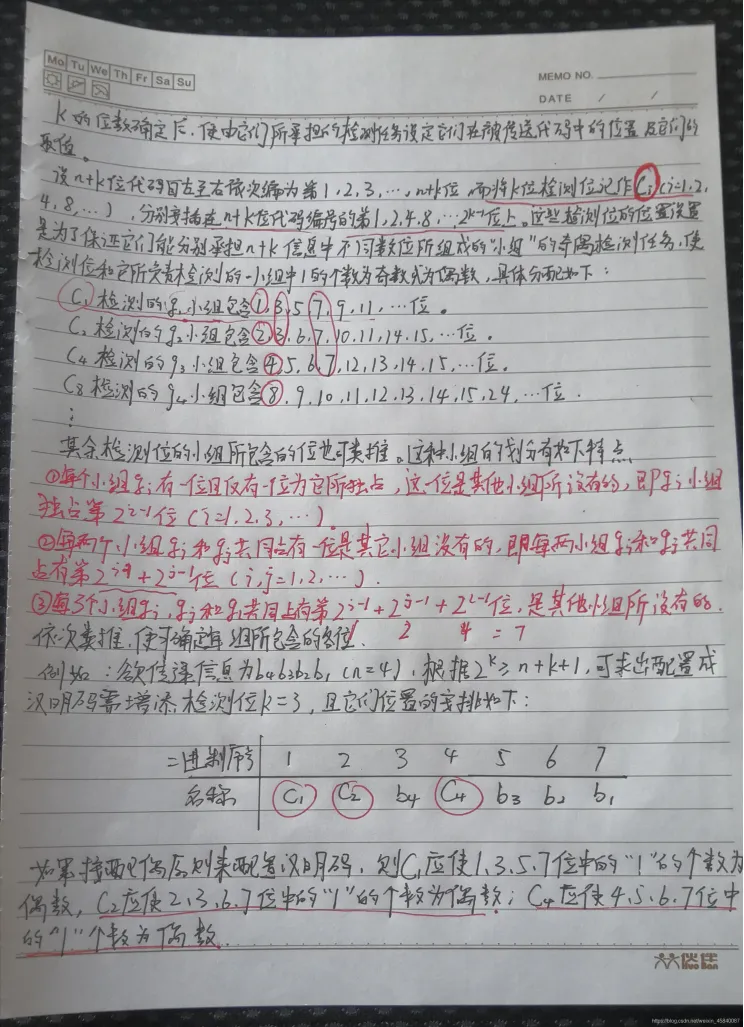 Mo Tu We Th Fr Sa Su
MEMO NO.
DATE / /
k的位数确定后,便由它们所承担的检测任务设定它们在被传送代码中的位置及它们的
取值。
设n+k位代码自左至右依次编为第1,2,3,…,n+k位,而将k位检测位记作Ci(i=1,2,
4,8,…),分别安插在n+k位代码编号的第1,2,4,8,…2^k-1位上。这些检测位的位置设置
是为了保证它们能分别承担n+k信息中不同数位所组成的“小组”的奇偶检测任务,使
检测位和它所负责检测的一小组中1的个数为奇数或为偶数,具体分配如下:
C1检测的g1小组包含①,3,5,7,9,11,…位。
C2检测的g2小组包含②,3,6,7,10,11,14,15,…位。
C4检测的g3小组包含④,5,6,7,12,13,14,15,…位。
C8检测的g4小组包含⑧,9,10,11,12,13,14,15,24,…位.
⋮
其余检测位的小组所包含的位也可类推。这种小组的划分有如下特点
①每个小组gi有一位且仅有一位为它所独占,这一位是其他小组所没有的,即gi小组
独占第2^i-1位(i=1,2,3,…).
②每两个小组gi和gj共同占有一位是其它小组没有的,即每两小组gi和gj共同
占有第2^i-1+2^j-1位(i,j=1,2,…).
③每3个小组gi,gj和gl共同占有第2^i-1+2^j-1+2^l-1位,是其他小组所没有的.
依次类推,便可确定每组所包含的各位. 1 2 4 = 7
例如:欲传递信息为b4b3b2b1(n=4),根据2^k≥n+k+1,可求出配置成
汉明码需增添检测位k=3,且它们位置的安排如下:
二进制序号 1 2 3 4 5 6 7
名称 C1 C2 b4 C4 b3 b2 b1
如果按配偶原则来配置汉明码,则C1应使1,3,5,7位中的“1”的个数为
偶数,C2应使2,3,6,7位中的“1”的个数为偶数;C4应使4,5,6,7位中
的“1”个数为偶数.
伙伴
Huo Ban
https://blog.csdn.net/weixin_45840087